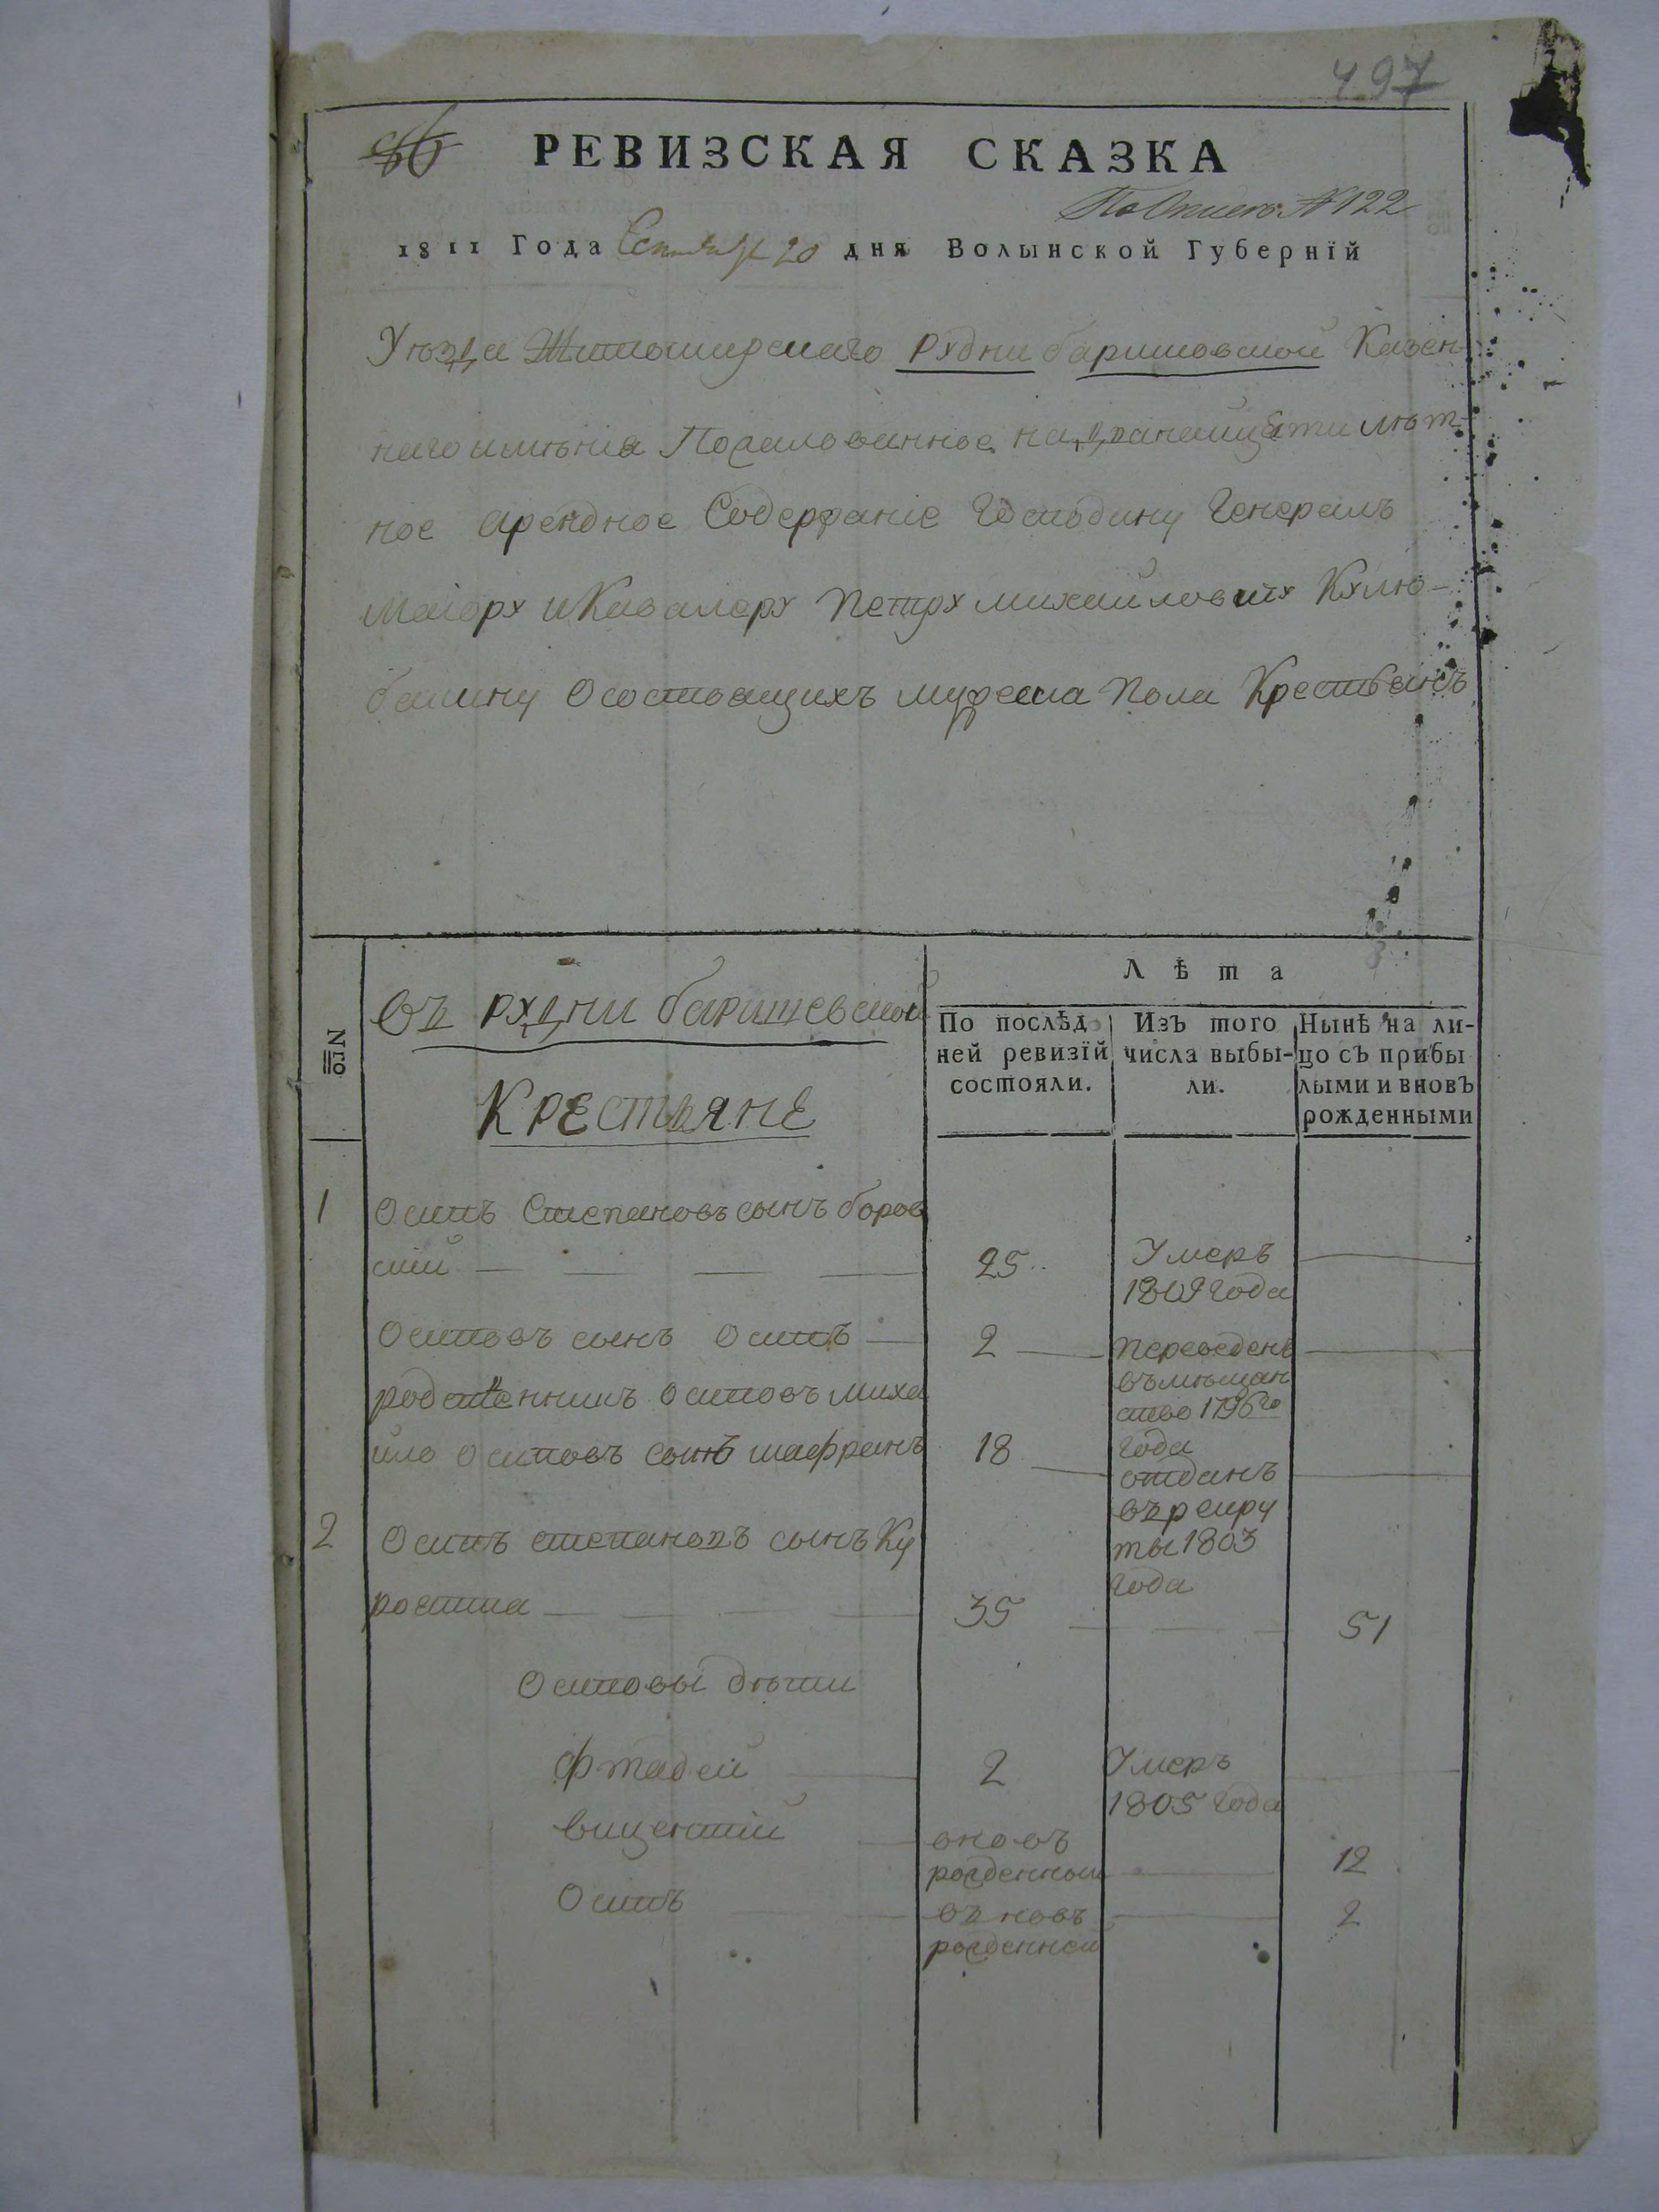 497
86 РЕВИЗСКАЯ СКАЗКА
По Описи № 122
1811 Года Сентября 20 дня Волынской Губернїй
Уѣзда Житомирскаго Рудни баришовской Казен
наго имѣнія Пожалованное на дванаццети лѣт
ное арендное Содержаніе Господину Генералъ
Маіору и Кавалеру Петру михайловичу Кулю-
бакину О состоящихъ мужеска Пола Крестьянъ
№
Въ рудни баришевской
Крестьяне
Лѣта
По послѣд
ней ревизїй
состояли.
Изъ того
числа выбы-
ли.
Нынѣ на ли-
цо съ прибы
лыми и вновъ
рожденными
1 Осипъ Степановъ сынъ боров
скій 25 Умеръ
1809 года
Осиповъ сынъ Осипъ 2 переведенъ
въ мѣщан
ство 1796го
года
родственникъ Осиповъ миха
йло Осиповъ сынъ шафранъ 18 отданъ
въ рекру
ты 1803
года
2 Осипъ степановъ сынъ Ку
рочька 35 51
Осиповы дѣти
Фтадей 2 Умеръ
1805 года
Вицентій вновъ
рожденный 12
Осипъ въновъ
рожденней 2